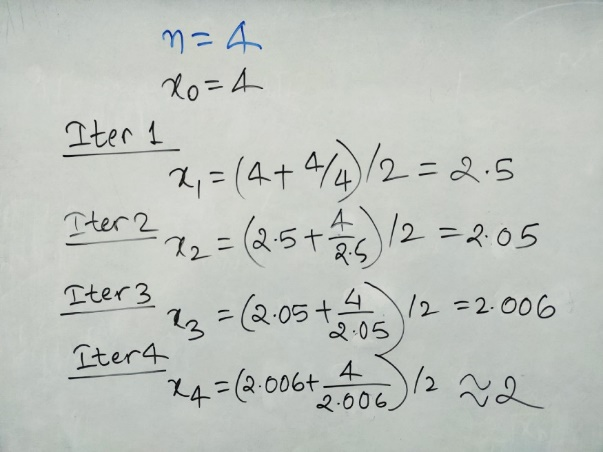 n = 4
x₀ = 4
Iter 1
x₁ = (4 + 4/4)/2 = 2.5
Iter 2 x₂ = (2.5 + 4/2.5)/2 = 2.05
Iter 3 x₃ = (2.05 + 4/2.05)/2 = 2.006
Iter 4 x₄ = (2.006 + 4/2.006)/2 ≈ 2